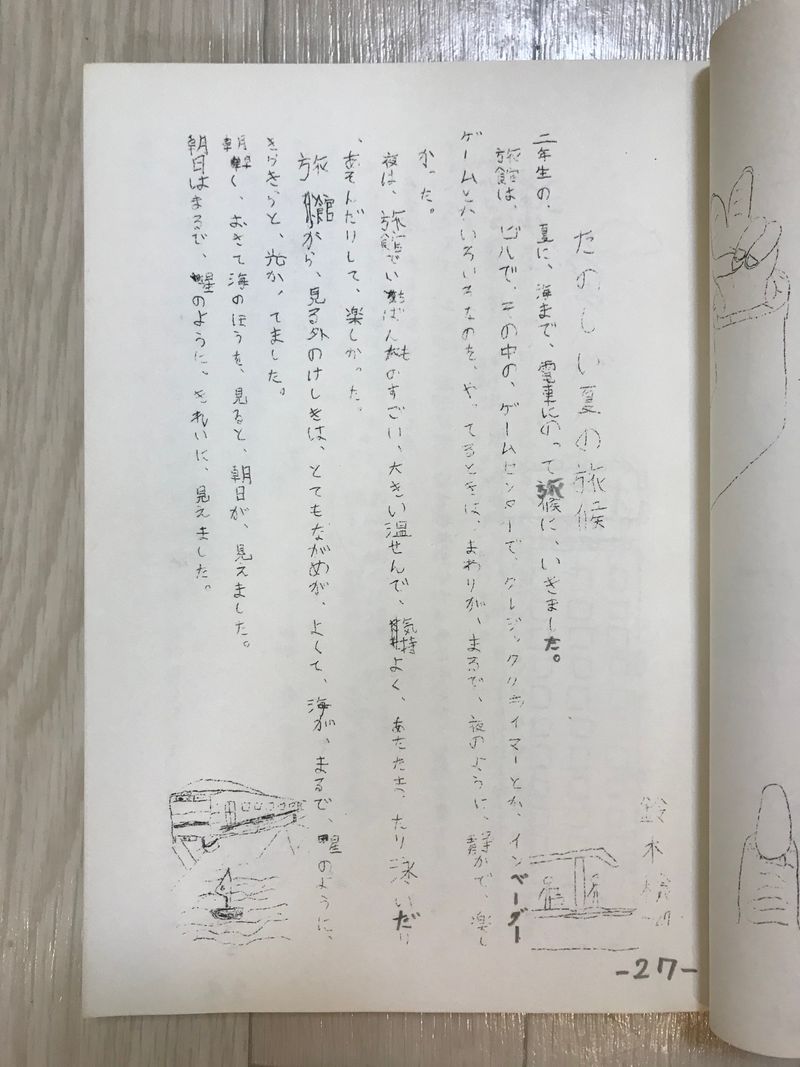 たのしい夏の旅候
鈴木
二年生の、夏に、海まで、電車にのって旅候に、いきました。
旅館は、ビルで、その中の、ゲームセンターで、クレジックライマーとか、インベーダー
ゲームとかいろいろなのを、やってるときは、まわりが、まるで、夜のように、静かで、楽し
かった。
夜は、旅館でいちばんものすごい、大きい温せんで、気持よく、あたたまったり泳いだり
、あそんだりして、楽しかった。
旅館から、見る外のけしきは、とてもながめが、よくて、海が、まるで、星のように、
きらきらと、光かってました。
朝早く、おきて海のほうを、見ると、朝日が、見えました。
朝日はまるで、星のように、きれいに、見えました。
-27-